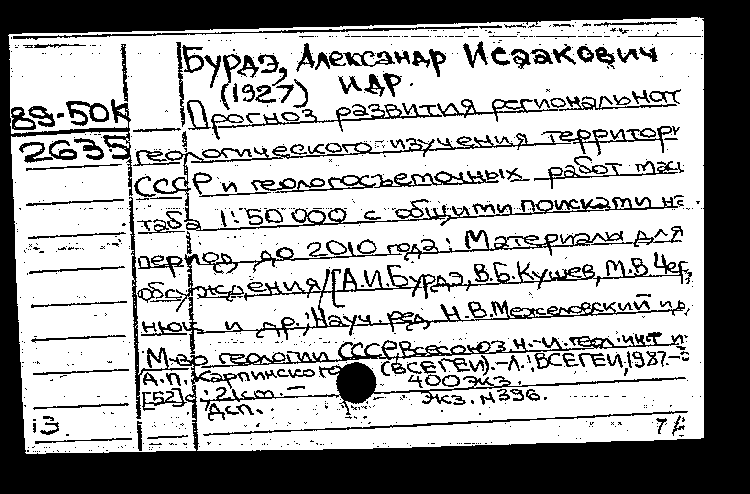 Бурдэ, Александр Исаакович
(1927) и др.
89-50К Прогноз развития региональног
2635 геологического изучения территор
СССР и геологосъемочных работ масш
таба 1:50 000 с общими поисками на
период до 2010 года: Материалы для
обсуждения/[А.И.Бурдэ, В.Б.Кушев, М.В.Чер,
нюк и др.; Науч. ред. Н.В.Межеловский и д,
М-во геологии СССР, Всесоюз. н.-и. геол. ин-т и
А.П. Карпинского (ВСЕГЕИ).-Л.: ВСЕГЕИ, 1987.-
[52]с.; 21см. — 400 экз.
Дсп. Экз. №396.
13